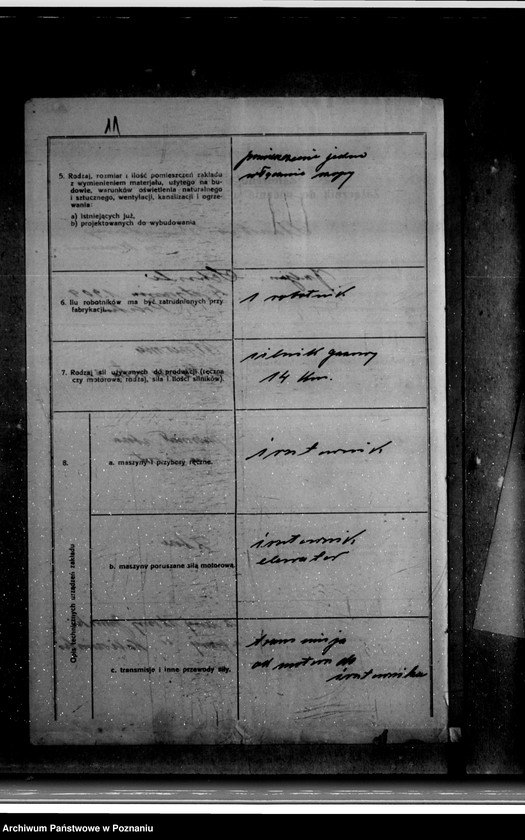 11
5. Rodzaj, rozmiar i ilość pomieszczeń zakładu
z wymienieniem materjału, użytego na bu-
dowie, warunków oświetlenia naturalnego
i sztucznego, wentylacji, kanalizacji i ogrze-
wania:
a) istniejących już,
b) projektowanych do wybudowania
pomieszczenie jedno
6. Ilu robotników ma być zatrudnionych przy
fabrykacji
1 robotnik
7. Rodzaj sił używanych do produkcji (ręczna
czy motorowa, rodzaj, siła i ilości silników).
silnik gazowy
14 km.
8.
Opis technicznych urządzeń zakładu
a. maszyny i przybory ręczne.
śrutownik
b. maszyny poruszane siłą motorową
śrutownik
elewator
c. transmisje i inne przewody siły.
transmisja
od motora do
śrutownika
Archiwum Państwowe w Poznaniu